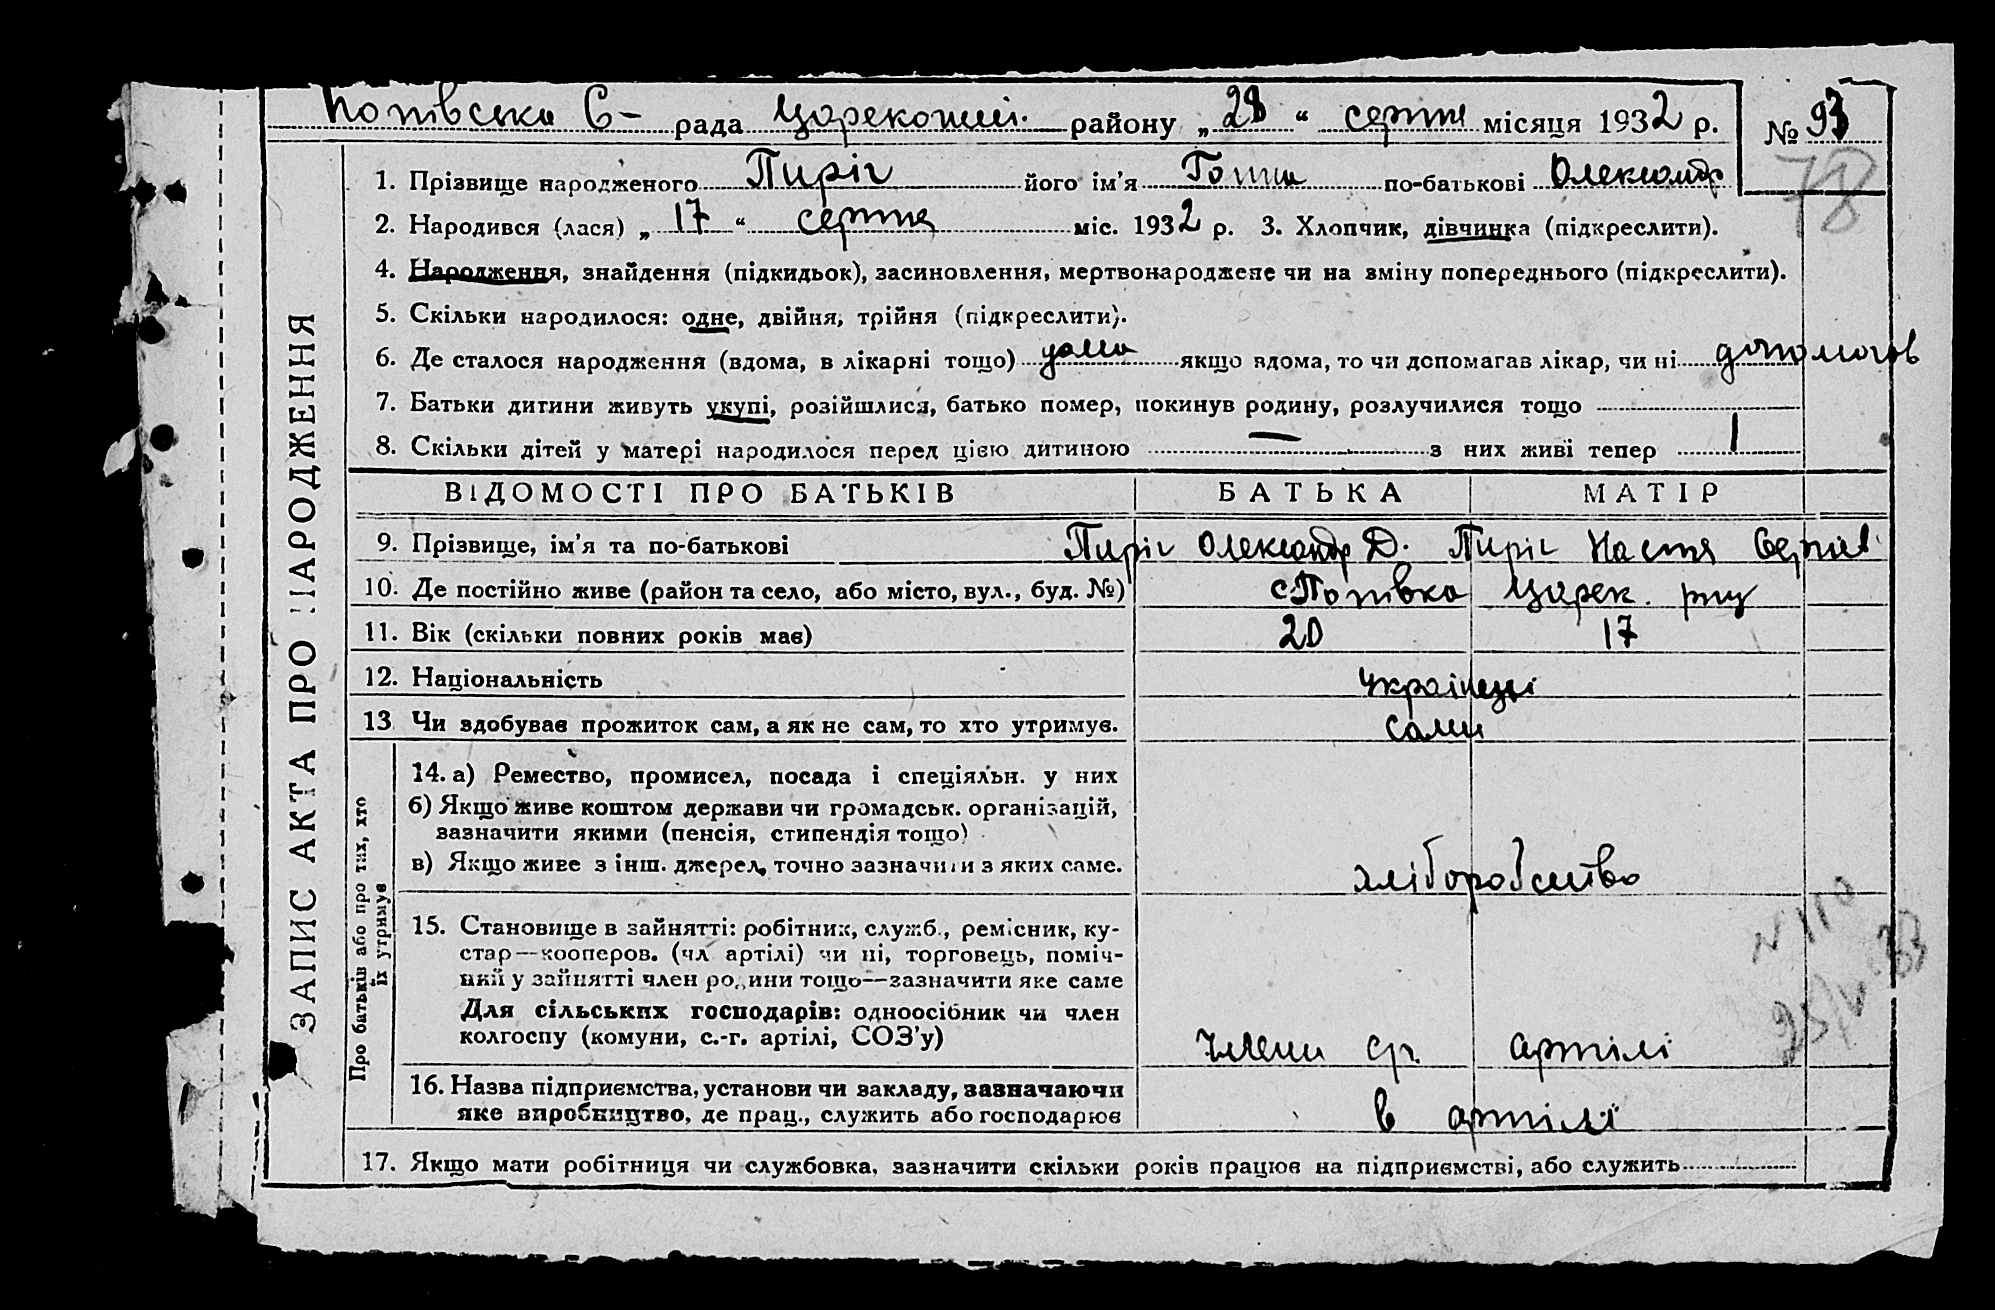 Попівська С- рада Царекон. району „28“ серпня місяця 1932 р. № 93
78
1. Прізвище народженого Пиріг його ім’я Ганна по-батькові Олександр
2. Народився (лася) „17“ серпня міс. 1932 р. 3. Хлопчик, дівчинка (підкреслити).
4. Народження, знайдення (підкидьок), засиновлення, мертвонароджене чи на зміну попереднього (підкреслити).
5. Скільки народилося: одне, двійня, трійня (підкреслити).
6. Де сталося народження (вдома, в лікарні тощо) дома якщо вдома, то чи допомагав лікар, чи ні допомогав
7. Батьки дитини живуть укупі, розійшлися, батько помер, покинув родину, розлучилися тощо
8. Скільки дітей у матері народилося перед цією дитиною — з них живі тепер 1
ЗАПИС АКТА ПРО НАРОДЖЕННЯ
ВІДОМОСТІ ПРО БАТЬКІВ БАТЬКА МАТІР
9. Прізвище, ім’я та по-батькові Пиріг Олександр Д. Пиріг Настя Сергіїв
10. Де постійно живе (район та село, або місто, вул., буд. №) с Попівка Царек. р-ну
11. Вік (скільки повних років має) 20 17
12. Національність українці
13 Чи здобуває прожиток сам, а як не сам, то хто утримує. сами
Про батьків або про тих, хто
їх утримує
14. а) Ремество, промисел, посада і спеціяльн. у них
б) Якщо живе коштом держави чи громадськ. організацій,
зазначити якими (пенсія, стипендія тощо)
в) Якщо живе з інш. джерел, точно зазначити з яких саме. хліборобство
15. Становище в зайнятті: робітник, служб., ремісник, ку-
стар—кооперов. (чл артілі) чи ні, торговець, поміч-
ний у зайнятті член родини тощо—зазначити яке саме
Для сільських господарів: одноосібник чи член
колгоспу (комуни, с.-г. артілі, СОЗ’у) члени ср. артілі
N 110
25/V-33
16. Назва підприємства, установи чи закладу, зазначаючи
яке виробництво, де прац., служить або господарює в артілі
17. Якщо мати робітниця чи службовка, зазначити скільки років працює на підприємстві, або служить